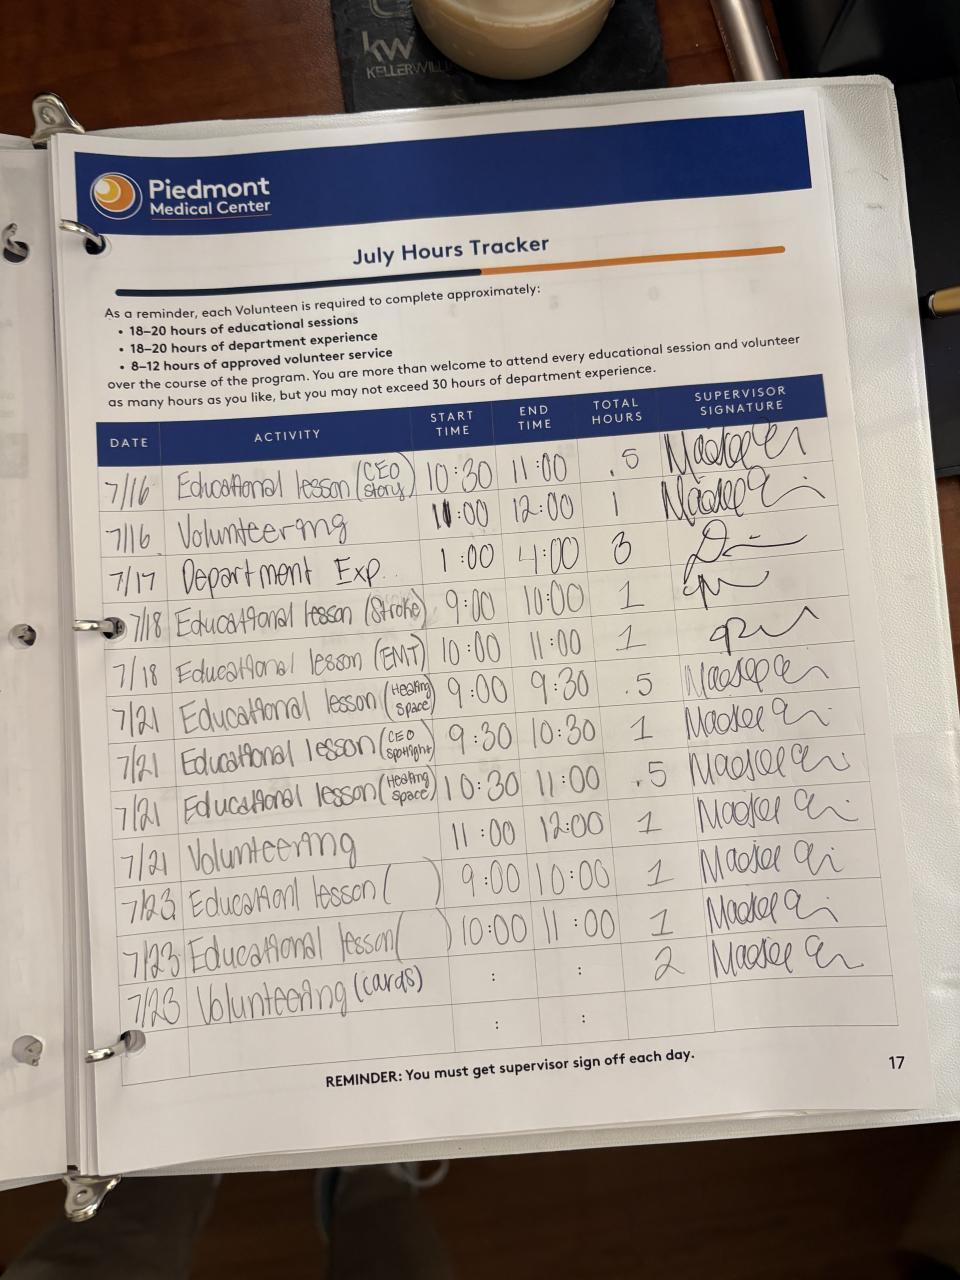 kw
KELLERWILL
Piedmont
Medical Center
July Hours Tracker
As a reminder, each Volunteen is required to complete approximately:
• 18–20 hours of educational sessions
• 18–20 hours of department experience
• 8–12 hours of approved volunteer service
over the course of the program. You are more than welcome to attend every educational session and volunteer
as many hours as you like, but you may not exceed 30 hours of department experience.
DATE ACTIVITY START TIME END TIME TOTAL HOURS SUPERVISOR SIGNATURE
7/16 Educational lesson (CEO story) 10:30 11:00 .5
7/16 Volunteering 11:00 12:00 1
7/17 Department Exp. 1:00 4:00 3
7/18 Educational lesson (Stroke) 9:00 10:00 1
7/18 Educational lesson (EMT) 10:00 11:00 1
7/21 Educational lesson (Healing Space) 9:00 9:30 .5
7/21 Educational lesson (CEO Spotlight) 9:30 10:30 1
7/21 Educational lesson (Healing Space) 10:30 11:00 .5
7/21 Volunteering 11:00 12:00 1
7/23 Educationl lesson ( ) 9:00 10:00 1
7/23 Educational lesson ( ) 10:00 11:00 1
7/23 Volunteering (cards) : : 2
: :
REMINDER: You must get supervisor sign off each day.
17